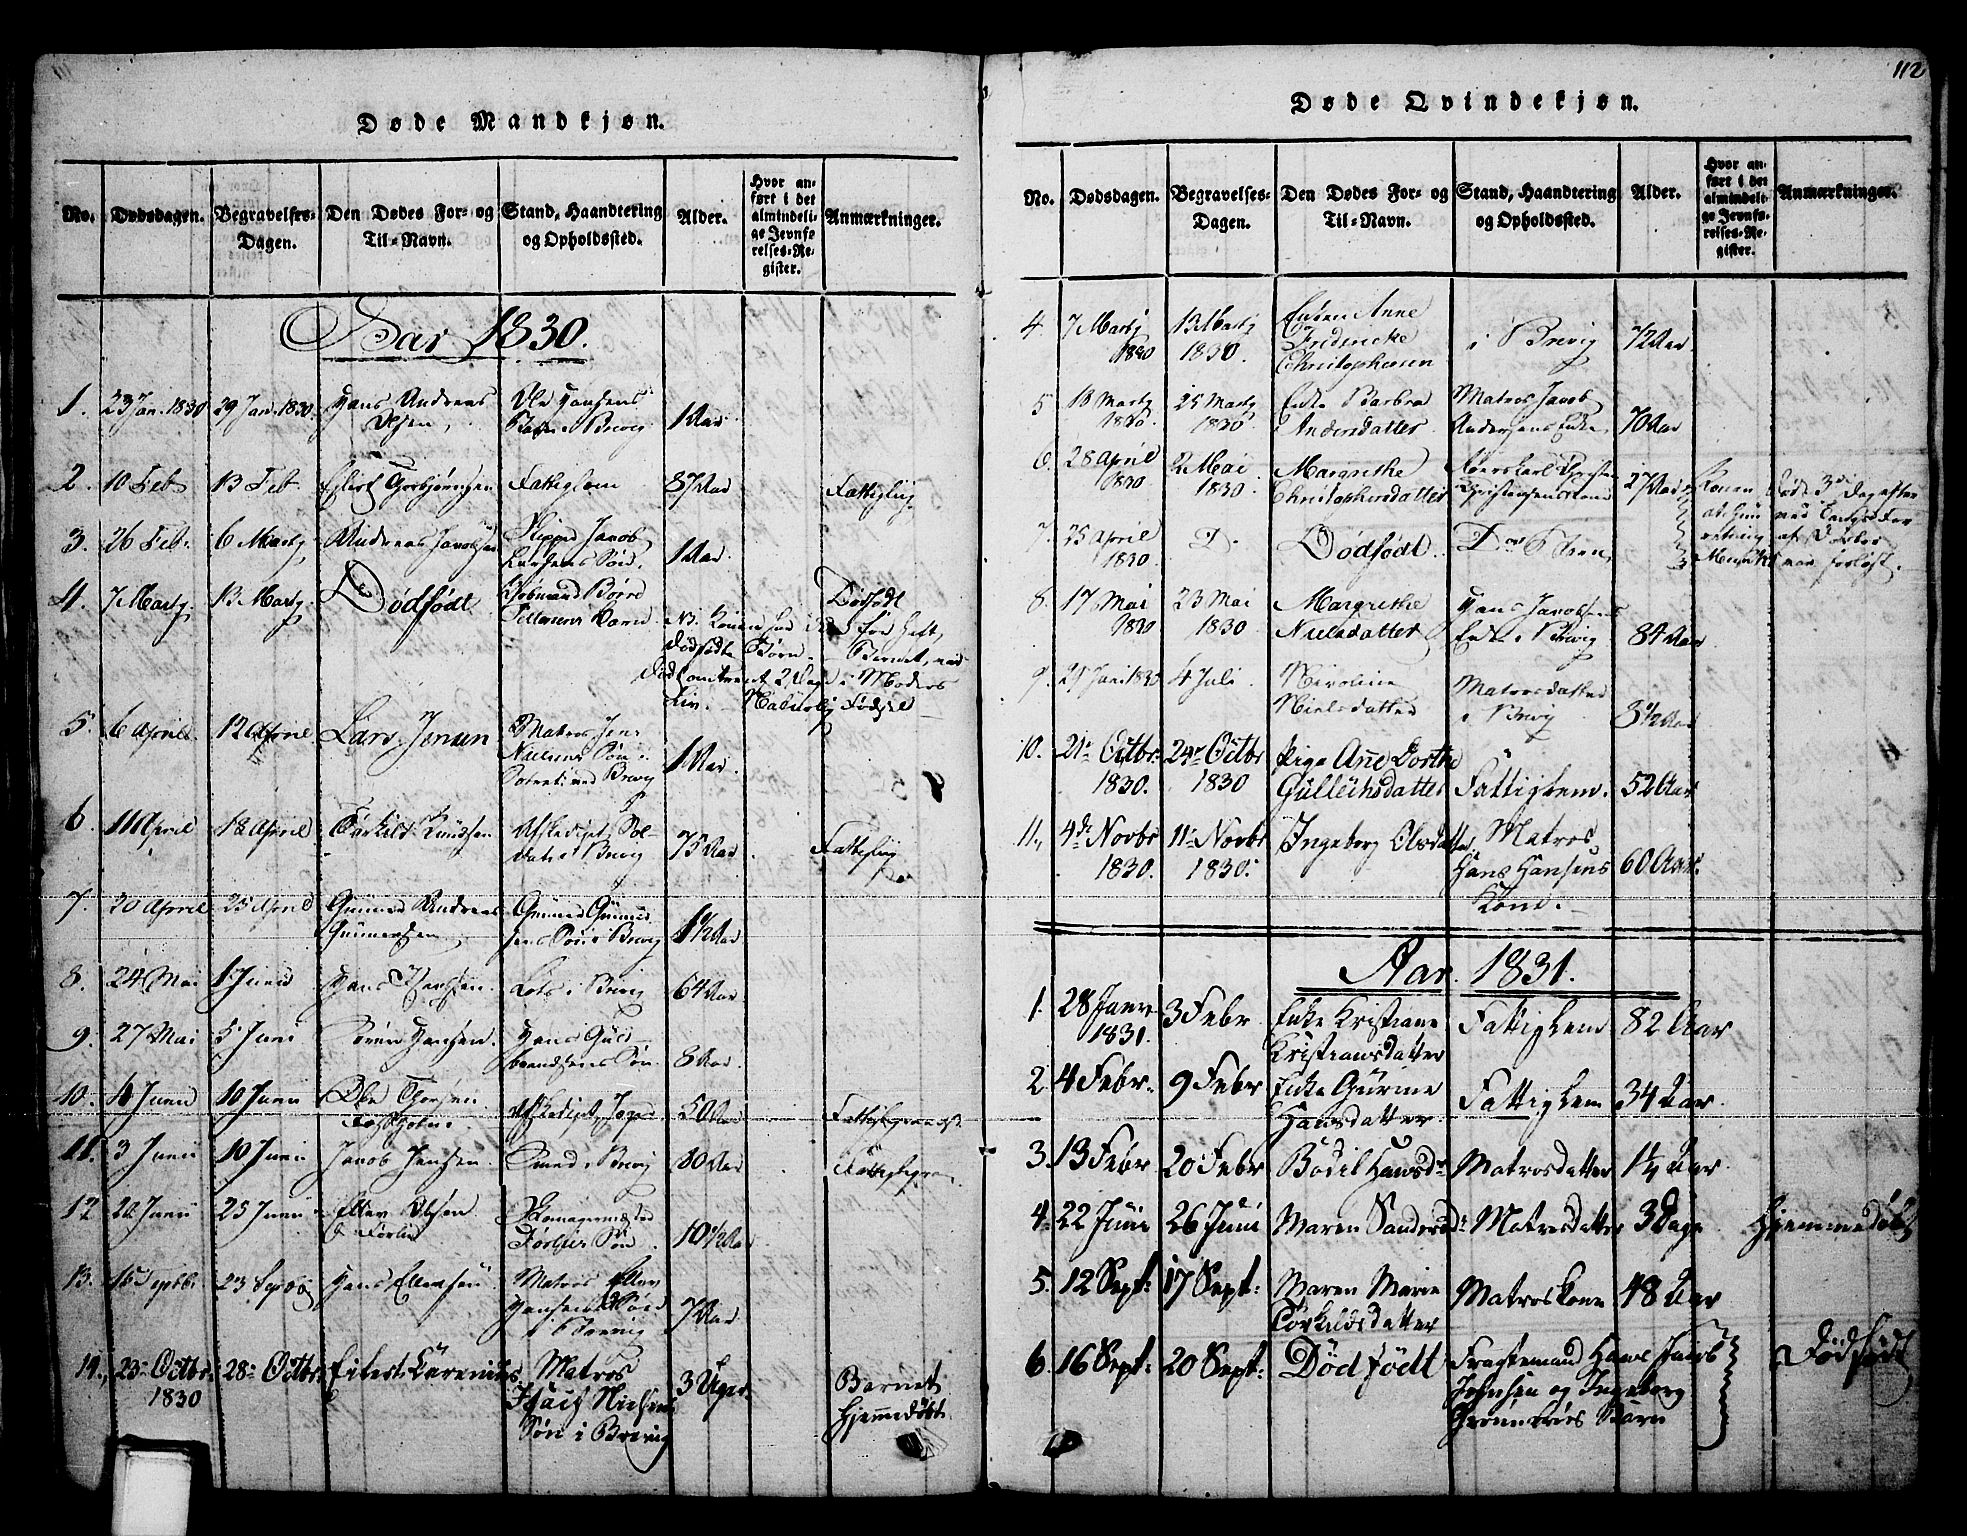 112
Døde Mandkjøn.
No. Dødsdagen. Begravelses-Dagen. Den Dødes For- og Til-Navn. Stand, Haandtering og Opholdssted. Alder. Hvor anført i det almindelige Jevnførelses-Register. Anmærkninger.
Aar 1830.
1. 23 Jan. 1830 29 Jan. 1830. Hans Andreas Olsen, Ole Hansens Søn i Brevig 1 Aar
2. 10 Feb 13 Feb. Eilert Torbjørnsen Fattiglem 87 Aar Fattiglig
3. 26 Feb. 6 Marty Andreas Jacobsen Skipper Jacob Larsens Søn. 1 Aar
4. 7 Marty 13 Marty. Dødfødt Børre Tellefsens Barn Dødfødt
NB. Konen har
dødfødte Børn.
2 Dage i Moders
Liv. Naturlig Fødsel
5. 6 April 12 April Lars Jensen Matros Jens Nielsens Søn i Brevig 1 Aar.
6. 11 April 18 April Torkild Knudsen Afskediget Soldat i Brevig 75 Aar Fattiglig
7. 20 April 25 April Gunner Andreas Gunnersen Gunner Gunnersens Søn i Brevig 1½ Aar
8. 24 Mai 1 Junii Hans Jensen. Lods i Brevig 64 Aar
9. 27 Mai 5 Juni Søren Hansen. Hans Guldbrandsens Søn 8 Aar
10. 4 Junii 10 Junii Ole Thorsen Afskediget 50 Aar
11. 3 Junii 10 Junii Jacob Jensen. Smed i Brevig 80 Aar
12 20 Junii 25 Junii Ellev Olsen Skomagermester Søn 10½ Aar
13. 15 Septb. 23 Septb Hans Ellevsen Matros Ellev Hansens Søn i Brevig 7 Aar
14., 23de Octbr. 1830 28de Octbr. Eilert Matros Isach Nielsens Søn i Brevig 3 Uger. Barnet Hjemmedøbt
Døde Qvindekjøn.
No. Dødsdagen. Begravelses-Dagen. Den Dødes For- og Til-Navn. Stand, Haandtering og Opholdssted. Alder. Hvor anført i det almindelige Jevnførelses-Register. Anmærkninger.
4 7 Marty 1830 13 Marty 1830. Enken Anne Fredericke Christophersen i Brevig 72 Aar
5 18 Marty 1830. 25 Marty 1830 Enke Barbra Andersdatter Matros Jacob Andersens Enke. 70 Aar
6. 28 April 1830. 2 Mai 1830. Margrethe Christophersdatter Christensens Kone 27 Aar Konen døde 3die Dag efter
7. 25 April 1830. D. Dødfødt. Do Barn
8. 17 Mai 1830 23 Mai 1830 Margrethe Nielsdatter Hans Jacobsens Enke i Brevig 84 Aar
9. 29 Juni 1830 4 Juli Nicoline Nielsdatter Matrosdatter i Brevig 3½ Aar
10. 21de Octbr. 1830. 24de Octbr 1830 Pige Ane Dorthe Gulleichsdatter Fattiglem. 52 Aar
11., 4de Novbr 1830. 11te Novbr 1830. Ingeborg Olsdatter, Matros Hans Hansens Kone. 60 Aar.
Aar. 1831.
1. 28 Janv 1831. 3 Febr Enke Kristiane Kristiansdatter Fattiglem 82 Aar
2. 4 Febr. 9 Febr Enke Gurine Hansdatter. Fattiglem 34 Aar.
3. 13 Febr 20 Febr Bodil Hansdr Matrosdatter 1¼ Aar
4. 22 Juni 26 Juni Maren Sandersdr Matrosdatter 3 Dage Hjemmedøbt
5. 12 Sept. 17 Sept. Maren Marie Torkildsdatter Matroskone 48 Aar
6. 16 Sept. 20 Sept. Dødfødt Fragtemand Hans Jacob Johnsen og Ingeborg Barn Dødfødt